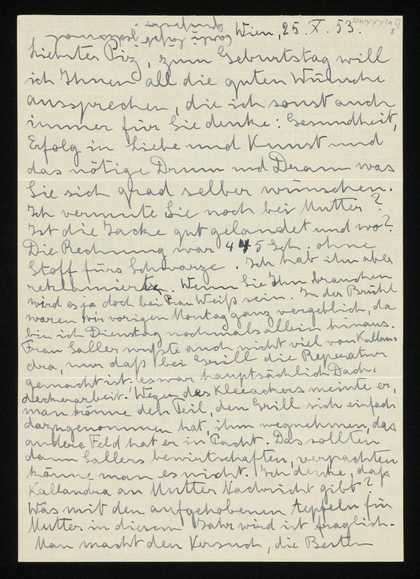 Wien, 25. X. 53.
Liebster Piz, zum Geburtstag will
ich Ihnen all die guten Wünsche
aussprechen, die ich sonst auch
immer für Sie denke: Gesundheit,
Erfolg in Liebe und Kunst und
das nötige Drum und Dran was
Sie sich grad selber wünschen.
Ich vermute Sie noch bei Mutter?
Ist die Jacke gut gelandet und wo?
Die Rechnung war 445 Sch. ohne
Stoff fürs Schwarze. Ich hab ihm aber
reklamiert. Wenn Sie Ihn brauchen
wird es ja doch bei Frau Weiß sein. In der Brühl
waren wir vorigen Montag ganz vergeblich, da
bin ich Dienstag nochmals allein hinaus.
Frau Saller wußte auch nicht viel von
, nur daß bei Grill die Reparatur
gemacht ist: es war hauptsächlich Dach-
deckerarbeit. Wegen des Kleeackers meinte er,
man könne den Teil, den Grill sich einfach
dazugenommen hat, ihm wegnehmen, das
andere Feld hat er in Pacht. Das sollten
dann Sallers bewirtschaften, verpachten
könne man es nicht. Ich denke, daß
Kallandra an Mutter Nachricht gibt?
Was mit den aufgehobenen Äpfeln für
Mutter in diesem Jahr wird ist fraglich.
Man macht den Versuch, die Besten